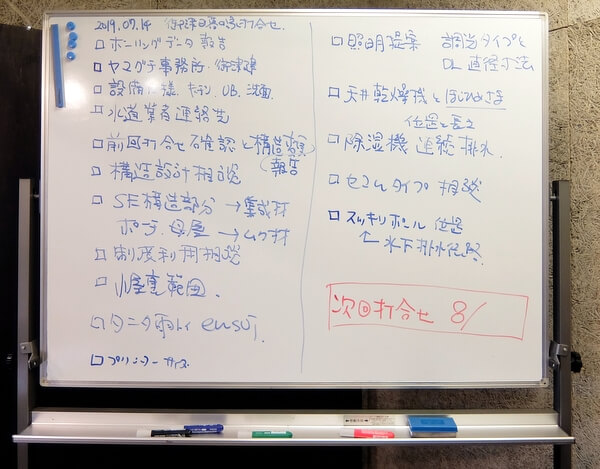 2019.07.14 打合せ
□ボーリングデータ報告
□ヤマグチ事務所・御津建
□設備仕様 キッチン、UB、洗面
□水道業者連絡先
□前回打合せ確認と構造 報告
□構造設計相談
□SE構造部分→集成材
ポーチ、母屋→ムク材
□制度利用相談
□小屋裏範囲.
□タニタ雨トイ ensui.
□プリンターサイズ
□照明提案 調光タイプと
DL 直径寸法
□天井乾燥機とほしひめさま
位置と長さ
□除湿機連続排水.
□セコムタイプ相談
□スッキリポール位置
↑水下排水経路
次回打合せ 8/